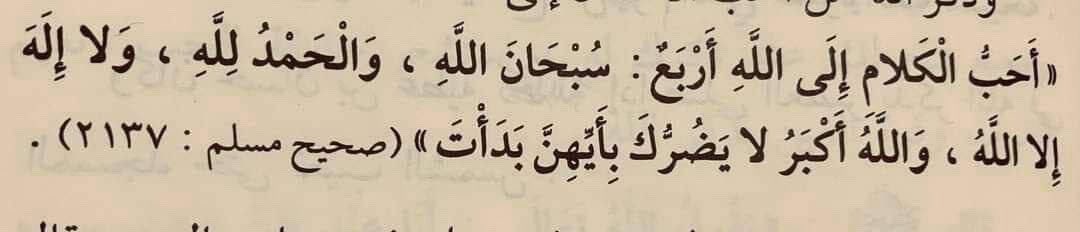 «أَحَبُّ الْكَلام إِلَى اللَّهِ أَرْبَعٌ : سُبْحَانَ اللَّهِ ، وَالْحَمْدُ لِلَّهِ ، وَلا إِلَهَ
إِلا اللَّهُ ، وَاللَّهُ أَكْبَرُ لا يَضُرُّكَ بِأَيِّهِنَّ بَدَأْتَ» (صحيح مسلم : ٢١٣٧) .